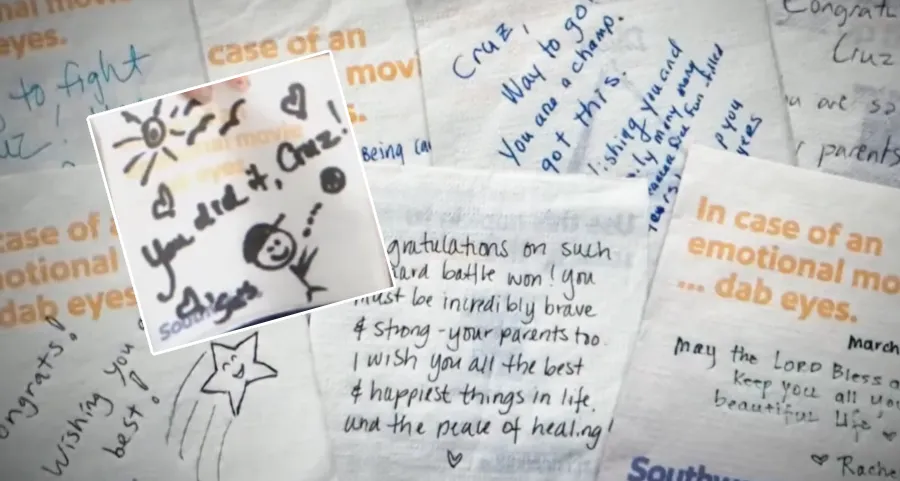 nal movie
eyes.
to fight
case of an
movi
s.
Being ca
Cruz,
Way to go!
You are a champ.
got this.
lishing you and
many many
fun filled
years!
p you
eyes
Congrat
Cruz
u are so
parents
You did it, Cruz!
South
case of a
otional
dab eyes
ongrats!
Wishing you
best!
gratulations on such
hard battle won! You
must be incredibly brave
& strong - your parents too.
I wish you all the best
& happiest things in life,
and the peace of healing!
In case of an
emotional mo
... dab eyes.
March
May the LORD Bless a
Keep you all you
beautiful life!
Rache
Southw